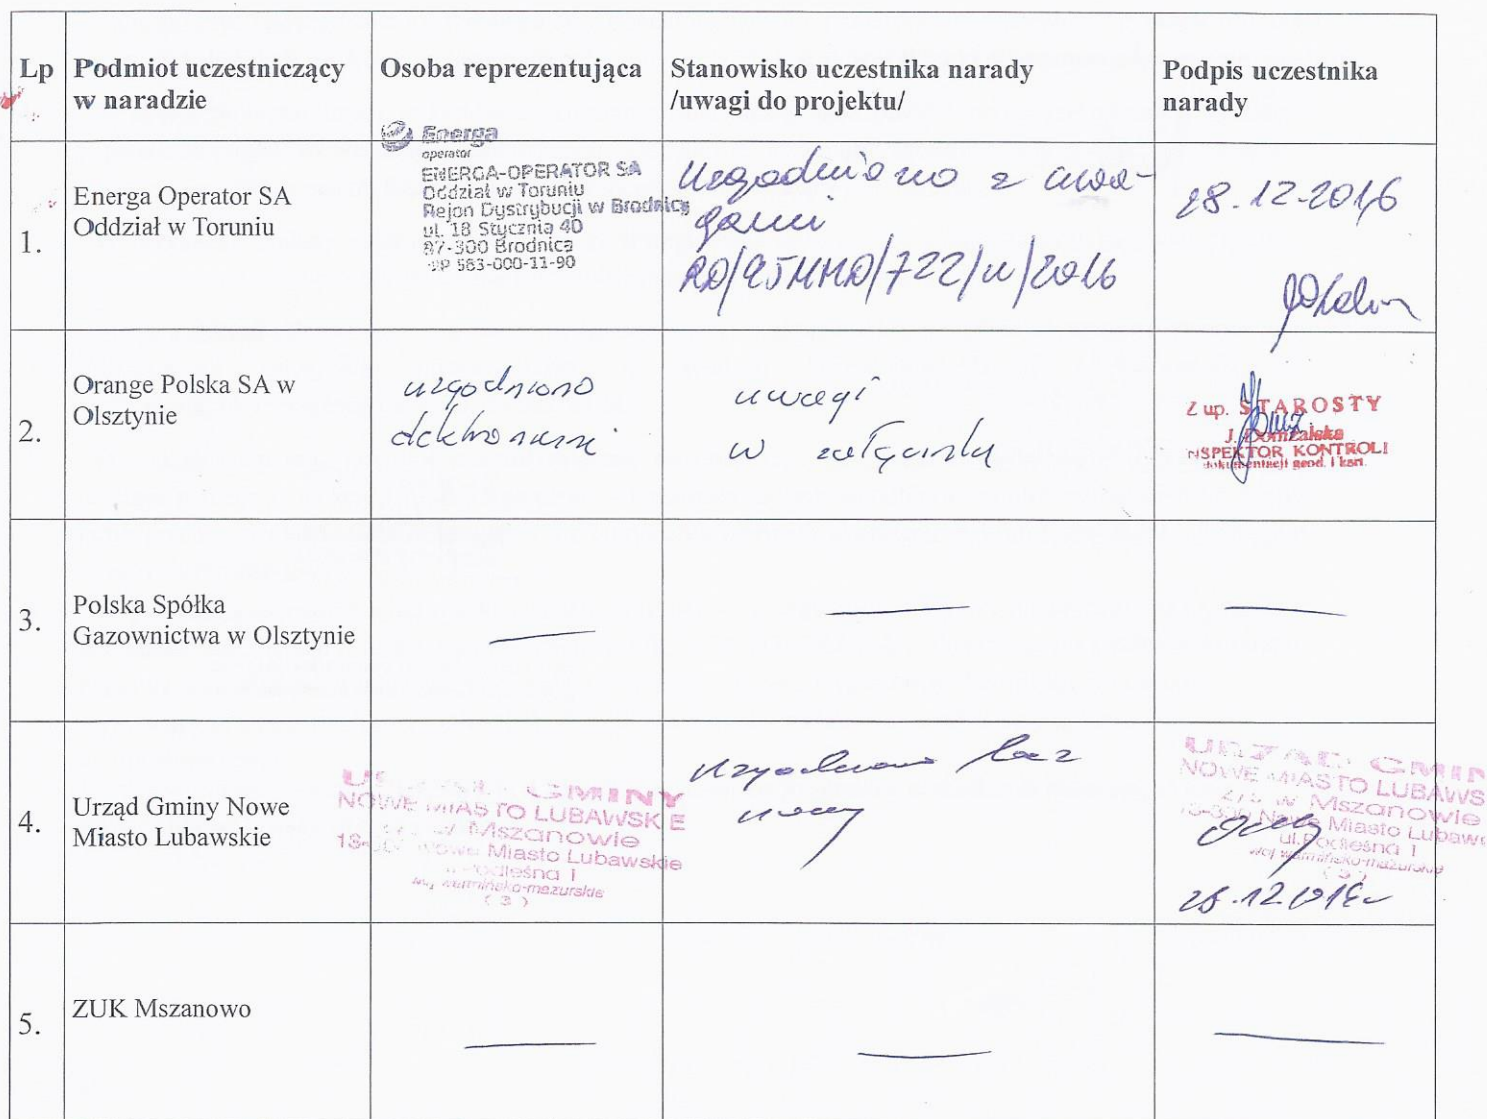 Lp
Podmiot uczestniczący
w naradzie
Osoba reprezentująca
Stanowisko uczestnika narady
/uwagi do projektu/
Podpis uczestnika
narady
1.
Energa Operator SA
Oddział w Toruniu
Energa
operator
ENERGA-OPERATOR SA
Oddział w Toruniu
Rejon Dystrybucji w Brodnicy
ul. 18 Stycznia 40
87-300 Brodnica
583-000-11-90
Uzgodniono z uwa-
gami
28.12.2016
2.
Orange Polska SA w
Olsztynie
uzgodniono
uwagi
w załączniku
Z up. STAROSTY
J. Domżalska
INSPEKTOR KONTROLI
dokumentacji geod. i kart.
3.
Polska Spółka
Gazownictwa w Olsztynie
4.
Urząd Gminy Nowe
Miasto Lubawskie
URZĄD GMINY
NOWE MIASTO LUBAWSKIE
z/s w Mszanowie
Nowe Miasto Lubawskie
ul. Podleśna 1
woj. warmińsko-mazurskie
( 3 )
Uzgodniono bez
uwag
URZĄD GMIN
NOWE MIASTO LUBAWS
z/s w Mszanowie
Nowe Miasto Lubaws
ul. Podleśna 1
woj. warmińsko-mazurskie
( 3 )
5.
ZUK Mszanowo